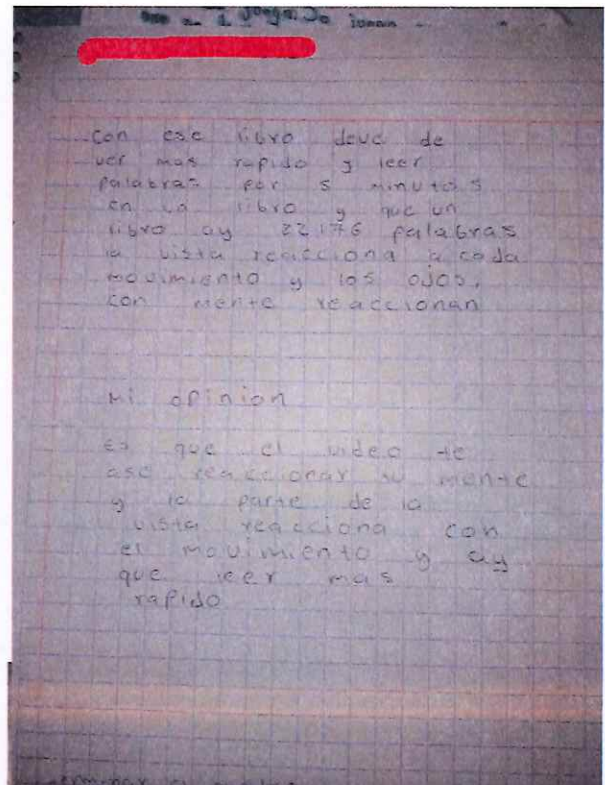 jugando
con ese libro deve de
ver mas rapido y leer
palabras por 5 minutos
en la libro y que un
libro ay 22176 palabras
la vista reacciona a cada
movimiento y los ojos.
con mente reaccionan
Mi opinion
Es que el video te
ase reaccionar tu mente
y la parte de la
vista reacciona con
el movimiento y ay
que leer mas
rapido